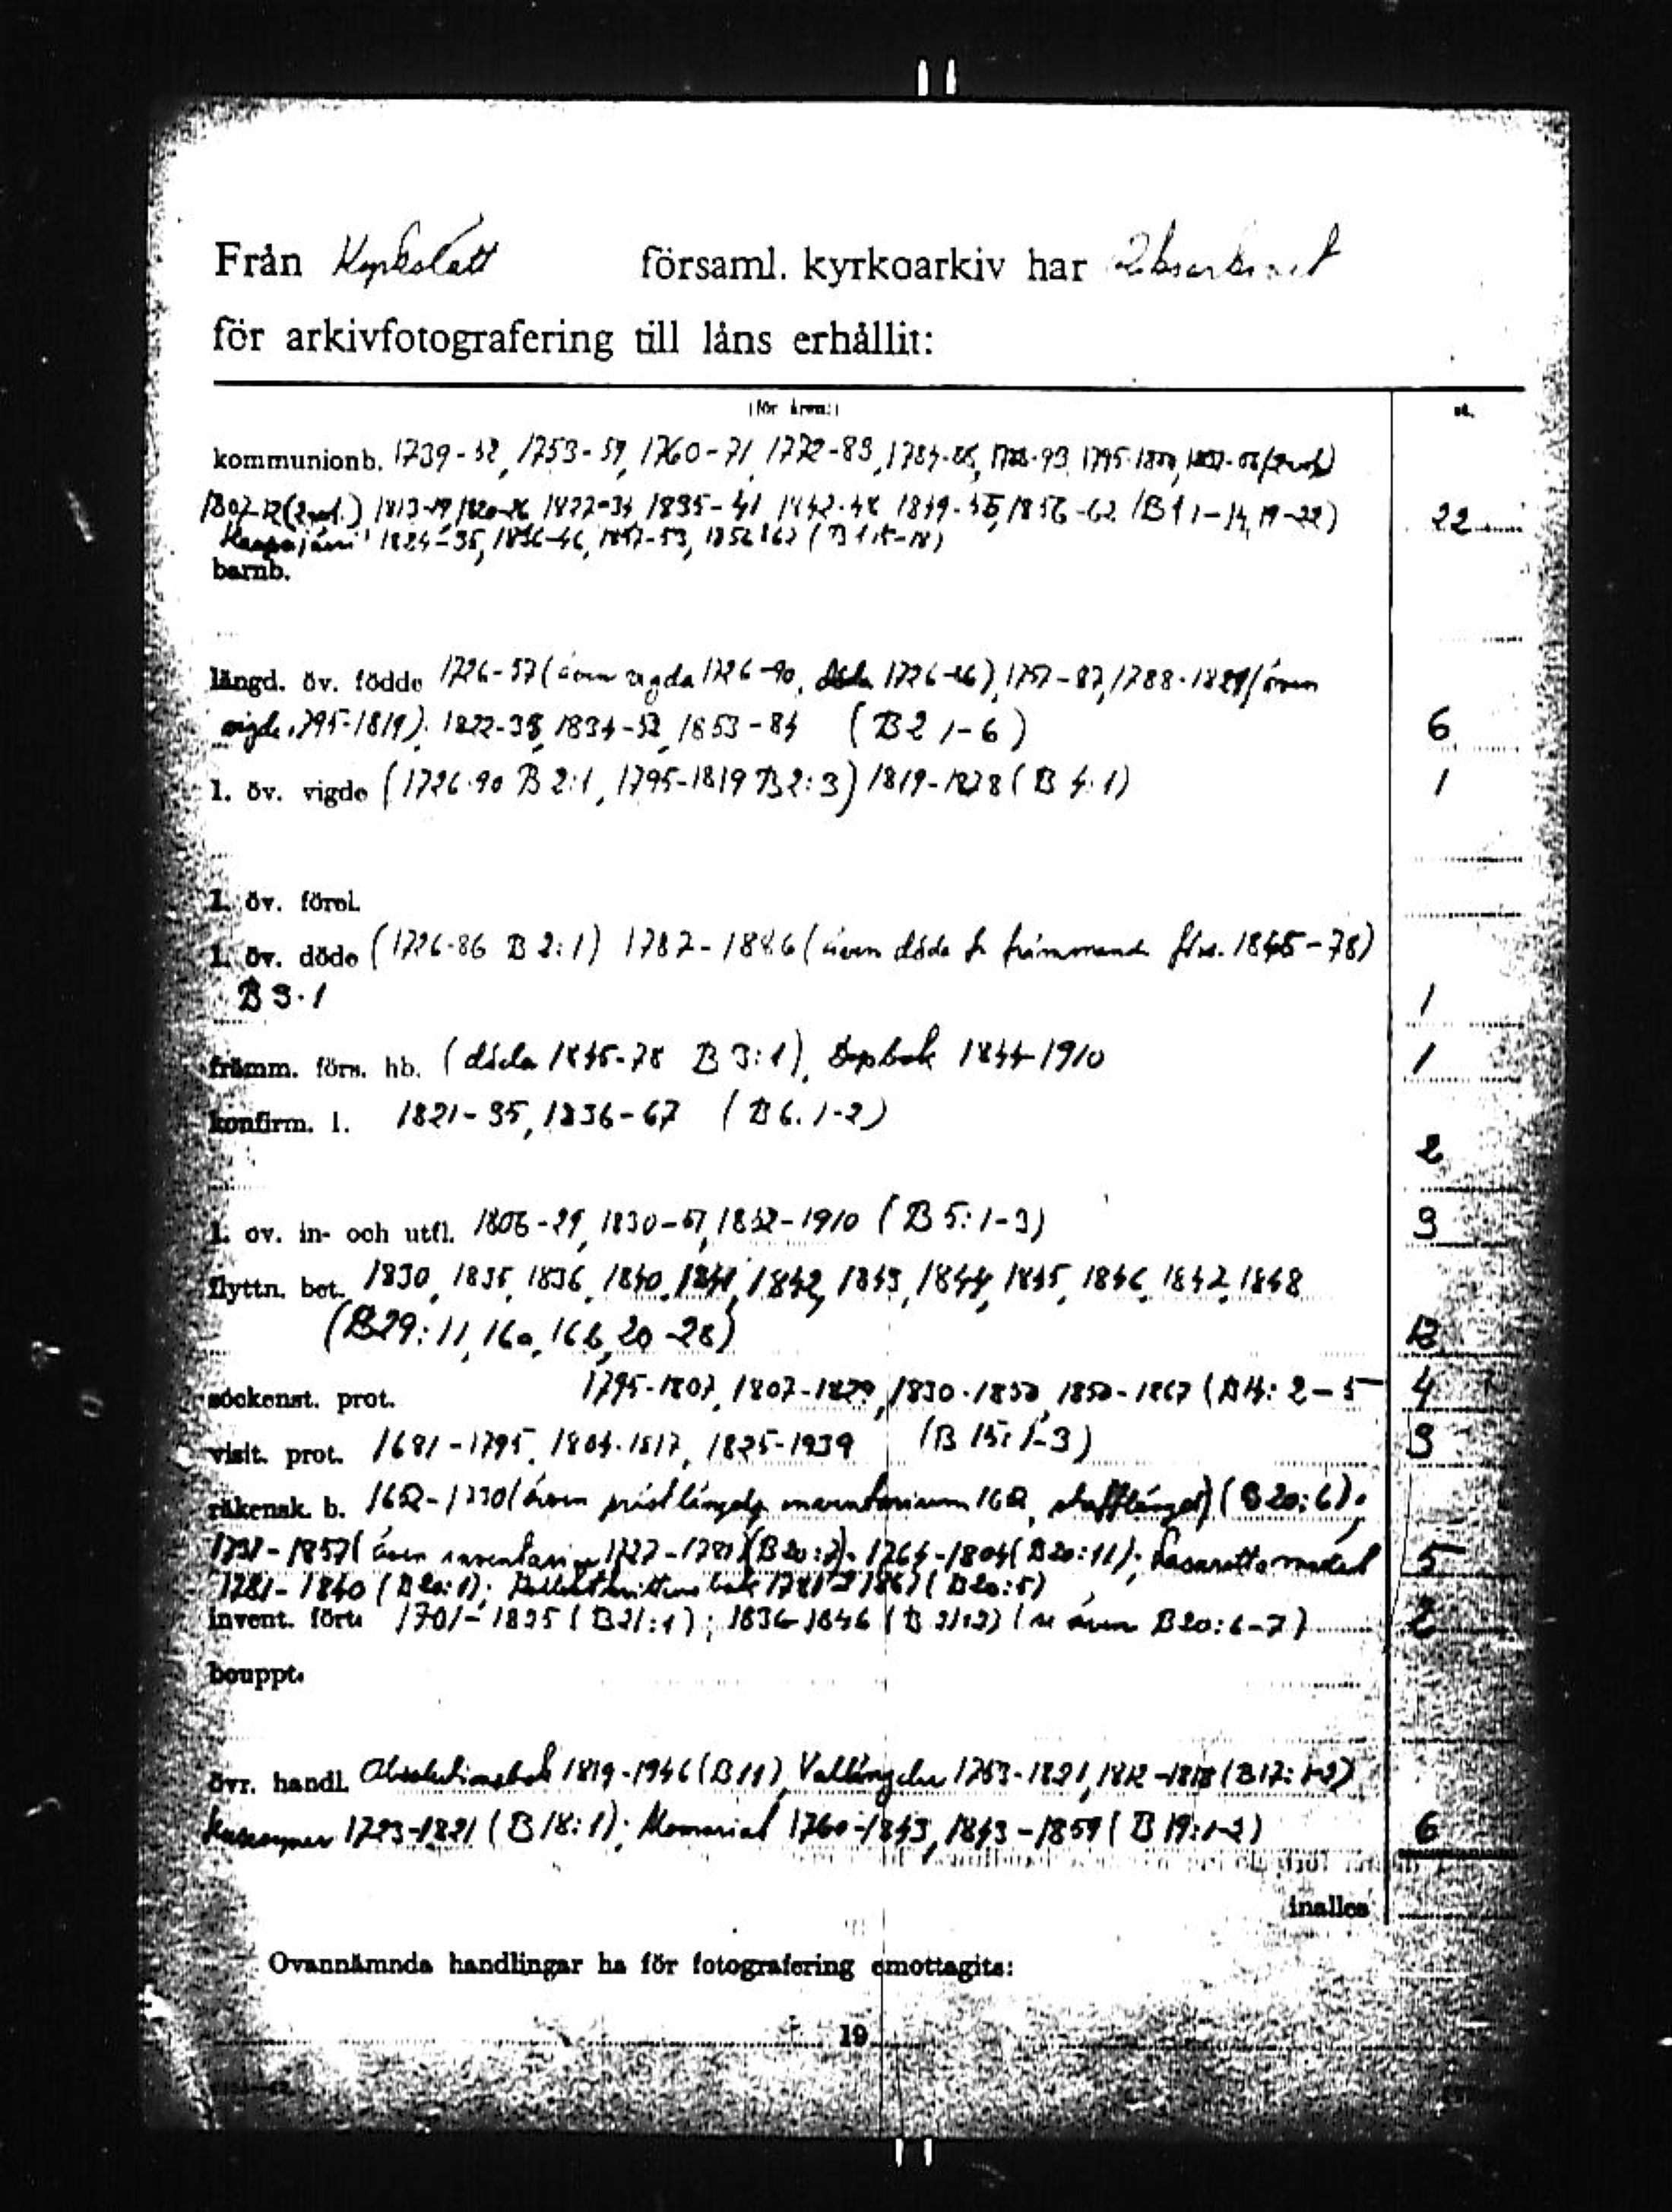 Från Kyrkslätt församl. kyrkoarkiv har Riksarkivet
för arkivfotografering till låns erhållit:
(för åren:) st.
kommunionb. 1739-52, 1753-59, 1760-71, 1772-83, 1784-86, 1788-93, 1795-1800,
1807-12 (2 vol.) 1813-19, 1820-26, 1827-34, 1835-41, 1842-48, 1849-55, 1856-62 (B 1 1-14, 19-22) 22
1824-35, 1836-46, 1847-53, (B 1 15-18)
barnb.
längd. öv. födde 1726-57 (även vigda 1726-90, döda 1726-86), 1757-87, 1788-1821 (även
vigde 1795-1819). 1822-33, 1834-52, 1853-84 (B 2 1-6) 6
l. öv. vigde (1726-90 B 2:1, 1795-1819 B 2:3) 1819-1878 (B 4:1) 1
l. öv. förel.
l. öv. döde (1726-86 B 2:1) 1787-1886 (även döde fr. främmande förs. 1845-78)
B 3:1 1
främm. förs. hb. (döda 1845-78 B 3:1), Dopbok 1844-1910 1
konfirm. l. 1821-35, 1836-67 (B 6:1-2)
2
l. öv. in- och utfl. 1806-29, 1830-51, 1852-1910 (B 5:1-3) 3
flyttn. bet. 1830, 1835, 1836, 1840, 1841, 1842, 1843, 1844, 1845, 1846, 1847, 1848
(B 29:11, 16a, 16b, 20-28) 12
sockenst. prot. 1795-1807, 1807-1829, 1830-1850, 1850-1867 (B 14: 2-5 4
visit. prot. 1681-1795, 1804-1817, 1825-1939 (B 15:1-3) 3
räkensk. b. (även inventarium (B 20:6);
1731-1857 (även inventarium 1727-1781) (B 20:7); 1764-1804 (B 20:11); Lasarettsmedel 5
1781-1840 (B 20:1); 1781-1867 (B 20:5)
invent. fört. 1701-1835 (B 21:1); 1836-1846 (B 21:2) (se även B 20:6-7) 2
bouppt.
övr. handl. Absolutionsbok 1819-1946 (B 11), Vallängder 1753-1821, 1812-1818 (B 17:1-2)
1723-1821 (B 18:1); Memorial 1760-1843, 1843-1859 (B 19:1-2) 6
inalles
Ovannämnda handlingar ha för fotografering emottagits:
19